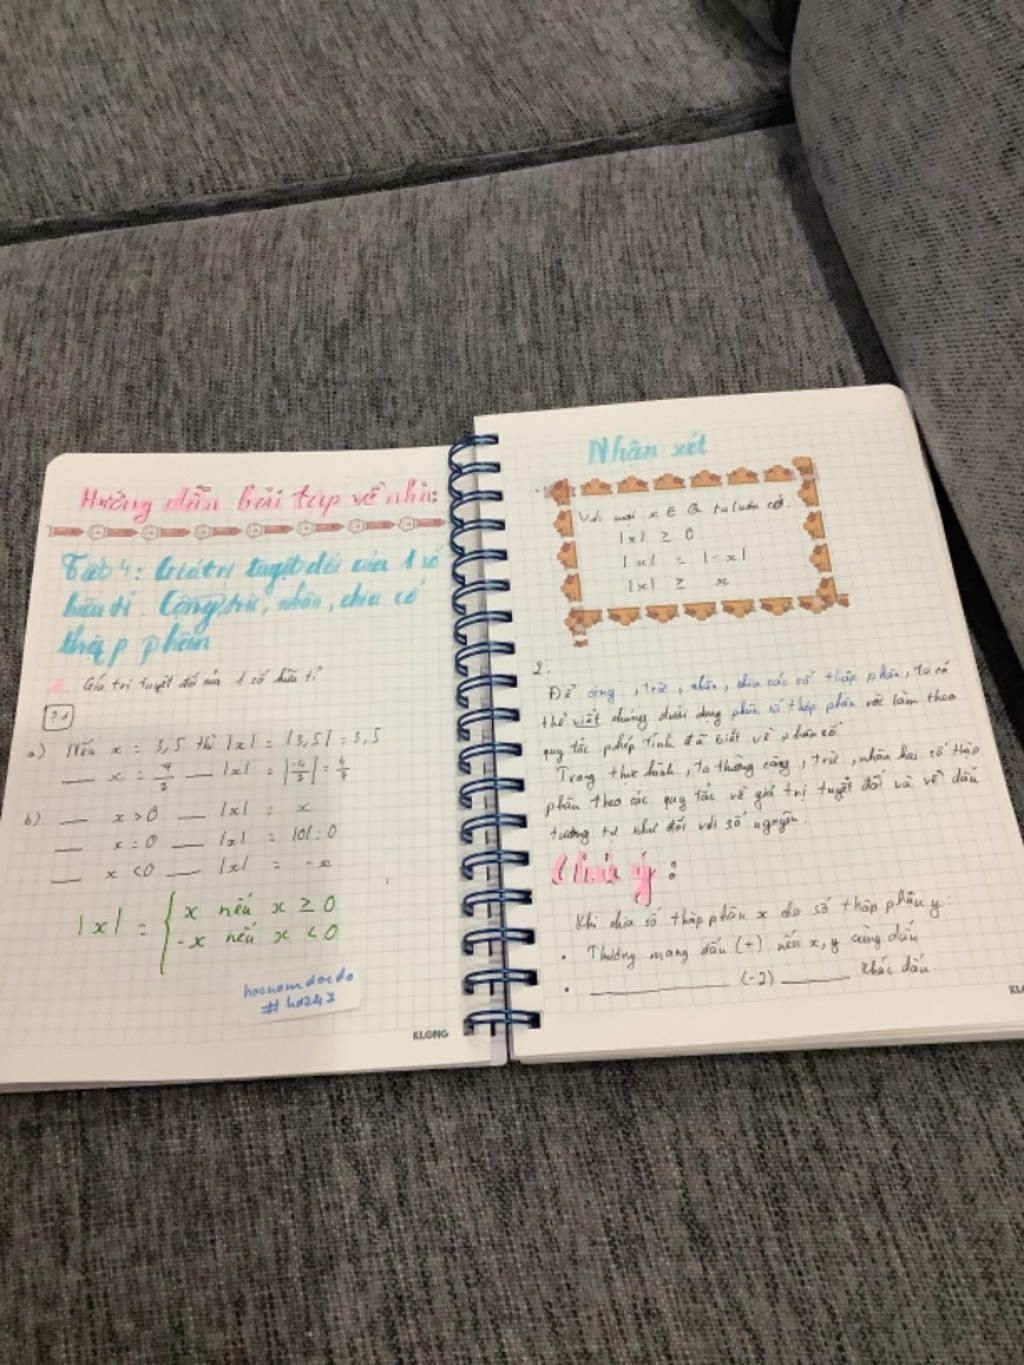 Hướng dẫn bài tập về nhà:
Tiết 4: Giá trị tuyệt đối của 1 số
hữu tỉ. Cộng, trừ, nhân, chia số
thập phân
1. Giá trị tuyệt đối của 1 số hữu tỉ
?1
a) Nếu x = 3,5 thì |x| = |3,5| = 3,5
___ x = ___ |x| = |-4/7| = 4/7
b) ___ x > 0 ___ |x| = x
___ x = 0 ___ |x| = |0| = 0
___ x < 0 ___ |x| = -x
|x| = { x nếu x ≥ 0
-x nếu x < 0
hoanamdacdo
#hd243
KLONG
Nhận xét
Với mọi x ∈ Q ta luôn có:
|x| ≥ 0
|x| = |-x|
|x| ≥ x
2.
Để cộng, trừ, nhân, chia các số thập phân, ta có
thể viết chúng dưới dạng phân số thập phân rồi làm theo
quy tắc phép tính đã biết về phân số
Trong thực hành, ta thường cộng, trừ, nhân hai số thập
phân theo các quy tắc về giá trị tuyệt đối và về dấu
tương tự như đối với số nguyên.
Chú ý:
Khi chia số thập phân x cho số thập phân y:
• Thương mang dấu (+) nếu x, y cùng dấu
• ___ (-) ___ khác dấu
KL